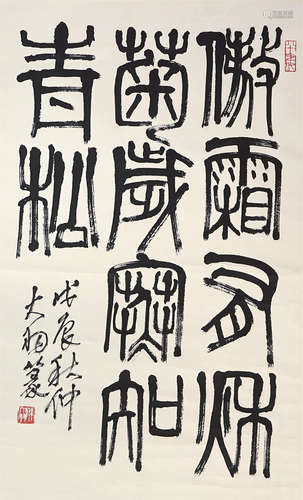 傲霜多秋
菊歲寒知
青松
戊辰秋仲
大翔篆